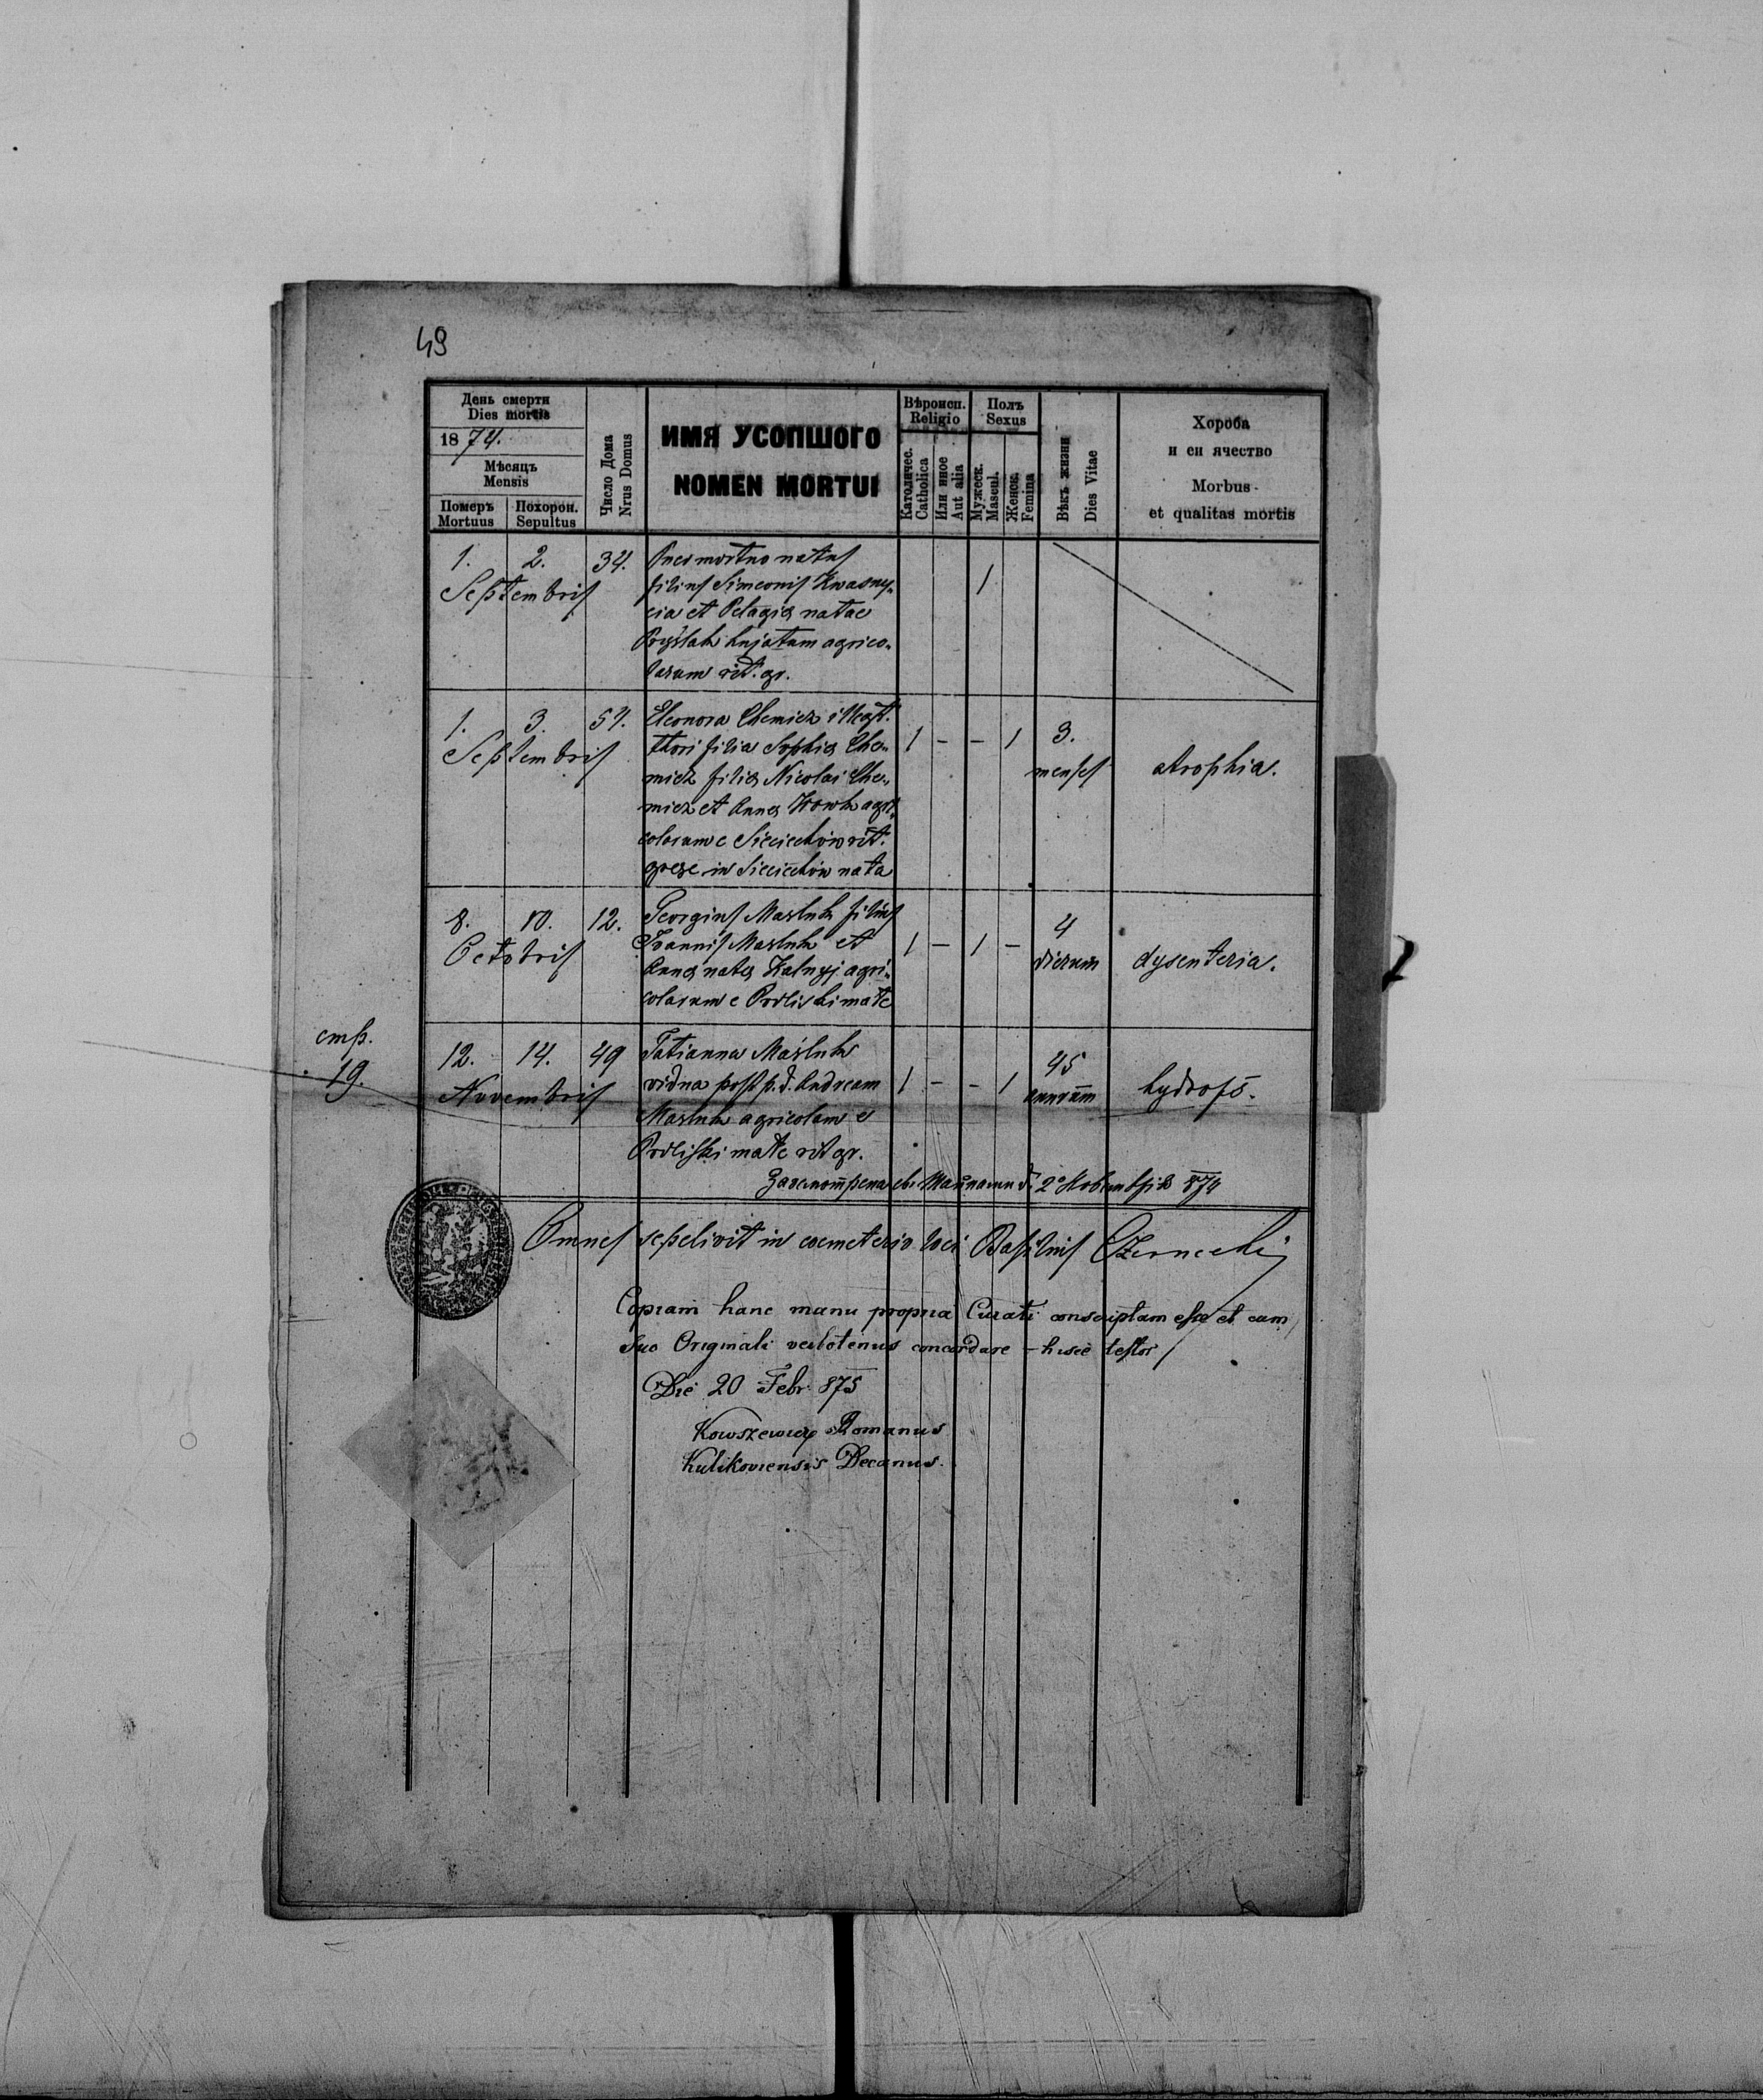 49
День смерти
Dies mortis
1874.
Мѣсяцъ
Mensis
Померъ
Mortuus
Похорон.
Sepultus
Число Дома
Nrus Domus
ИМЯ УСОПШОГО
NOMEN MORTUI
Вѣроисп.
Religio
Католичес.
Catholica
Или иное
Aut alia
Полъ
Sexus
Мужеск.
Mascul.
Женск.
Femina
Вѣкъ жизни
Dies Vitae
Хороба
и еи ячество
Morbus
et qualitas mortis
1. 2. 34.
Septembris
Puer mortuo natus
filius Simeonis Kwasny-
cia et Pelagiae natae
hujatum agrico-
larum rit. gr.
1
1. 3. 54.
Septembris
Eleonora Chemicz illegit.
thori filia Sophiae Che-
micz filiae Nicolai Che-
micz et Annae agri-
colarum e Sieciechów rit.
graec in Sieciechów nata
1 - - 1
3.
menses
atrophia.
8. 10. 12.
Octobris
Georgius Masluk filius
Joannis Masluk et
Annae natae Kalnyj agri-
colarum e Podliski małe
1 - 1 -
4
dierum
dysenteria.
стр.
19.
12. 14. 49
Novembris
Tatianna Masluk
vidua post p. d. Andream
Masluk agricolam e
Podliski małe rit gr.
1 - - 1
45
annorum
hydrops.
Omnes sepelivit in coemeterio loci Basilius Czernecki
Copiam hanc manu propria Curati conscriptam esse et cum
suo Originali verbotenus concordare hisce testor
Die 20 Febr 875
Romanus
Kulikoviensis Decanus.